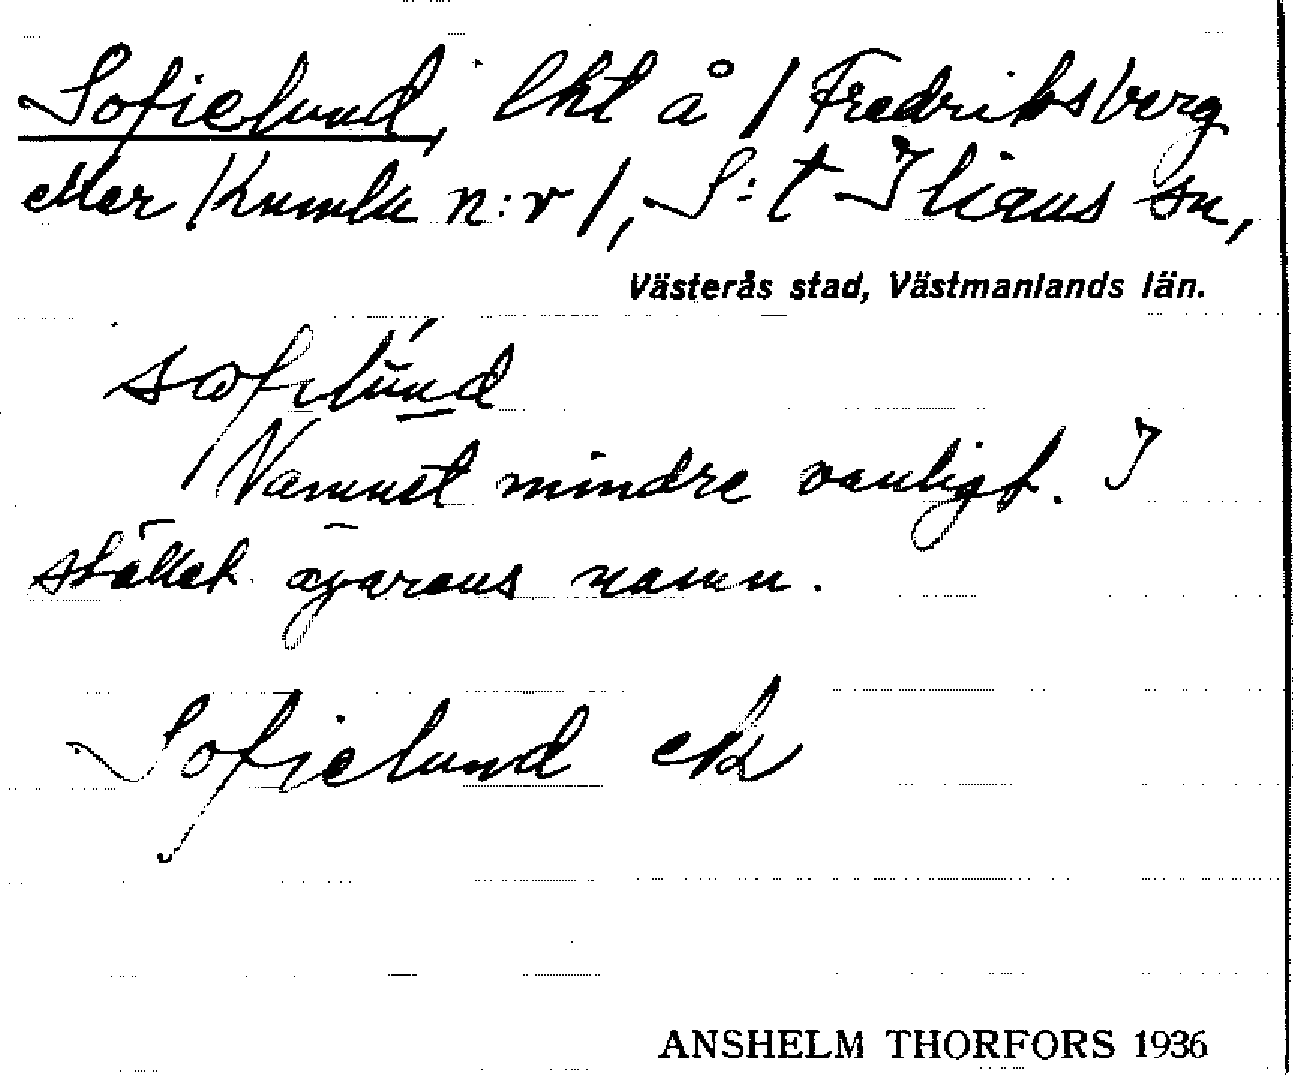 Sofielund, lht å / Fredriksberg
eller Kumla n:r /, S:t Ilians sn,
Västerås stad, Västmanlands län.
sofilund
Namnet mindre vanligt. I
stället ägarens namn.
Sofielund ek
ANSHELM THORFORS 1936